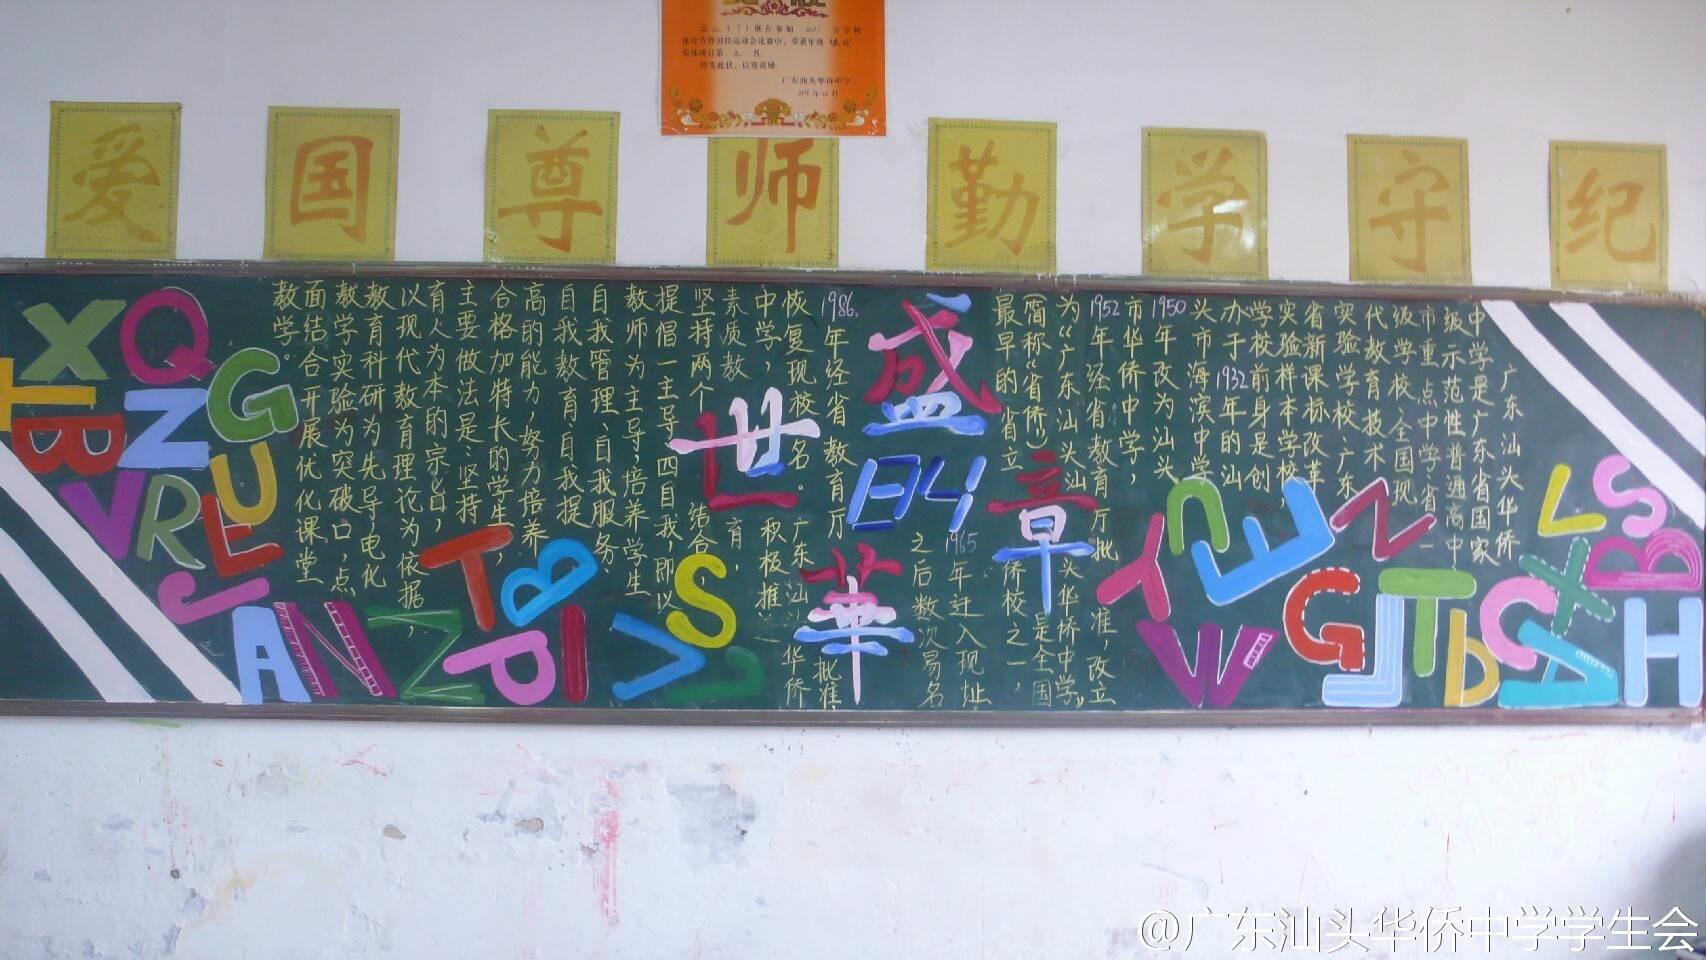 高二（7）班在参加2015年学校
体育节暨田径运动会比赛中，荣获年级
集体项目第
特发此状，以资鼓励
广东汕头华侨中学
爱国尊师勤学守纪
广东汕头华侨
中学是广东省国家
级示范性普通高中
市重点中学、省一
级学校、全国现
代教育技术
实验学校、广东
省新课标改革
实验样本学校，
学校前身是创
办于1932年的汕
头市海滨中学
1950年改为汕头
市华侨中学，
1952年经省教育厅批准，改立
为“广东汕头华侨中学”
(简称“省侨”)是全国
最早的省立侨校之一，
1965年迁入现址
之后数次易名
盛世
明章
華
1986年经省教育厅批准
恢复现校名。广东汕头华侨
中学，积极推进
素质教育，
坚持两个结合
提倡一主导四自我，即以
教师为主导，培养学生
自我管理、自我服务、
自我教育、自我提
高的能力，努力培养
合格加特长的学生，
主要做法是：坚持
育人为本的宗旨，
以现代教育理论为依据，
教育科研为先导，电化
教学实验为突破口，点
面结合开展优化课堂
教学。
X Q G
T B N U
V R E
J A N Z T B P I V S J
Y N E Z L S
W G J T D C X B A H
@广东汕头华侨中学学生会